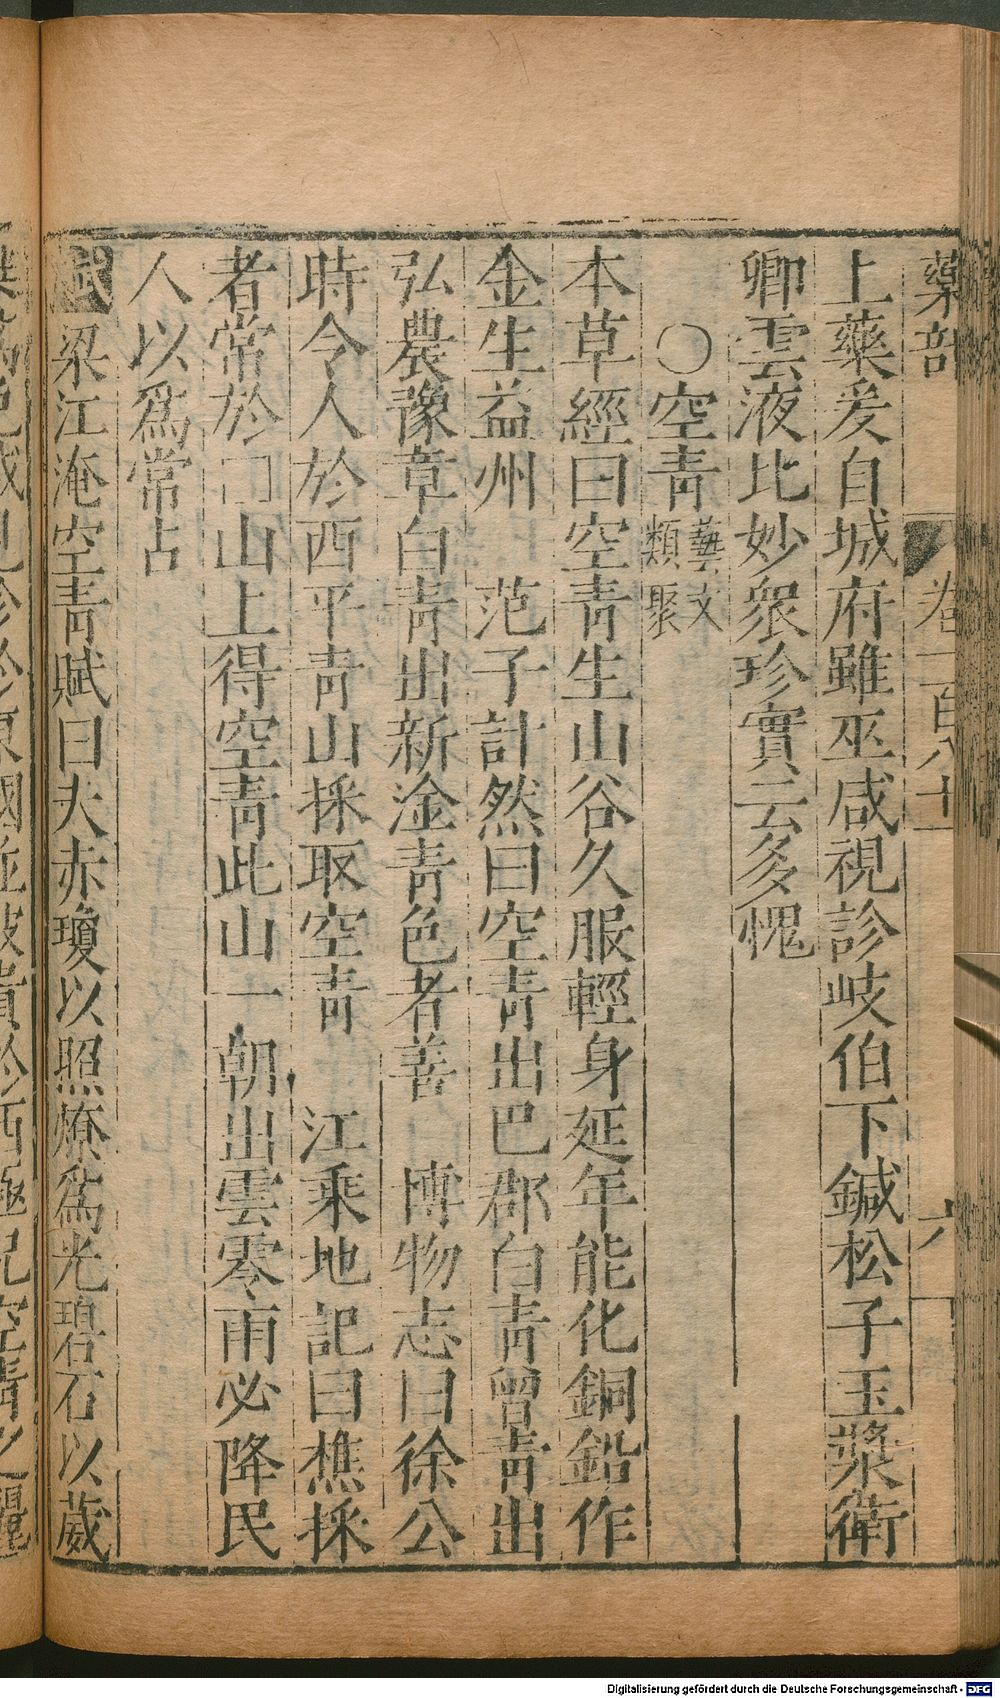 藥部 卷一百八十一 六
上藥爰自城府雖巫咸視診岐伯下鍼松子玉漿衛
卿雲液比妙衆珍實云多愧
○空青 藝文類聚
本草經曰空青生山谷久服輕身延年能化銅鉛作
金生益州 范子計然曰空青出巴郡白青曾青出
弘農豫章白青出新淦青色者善 博物志曰徐公
時令人於西平青山採取空青 江乘地記曰樵採
者常於□山上得空青此山一朝出雲零雨必降民
人以爲常占
賦 梁江淹空青賦曰夫赤瓊以照燎爲光碧石以葳
Digitalisierung gefördert durch die Deutsche Forschungsgemeinschaft - DFG